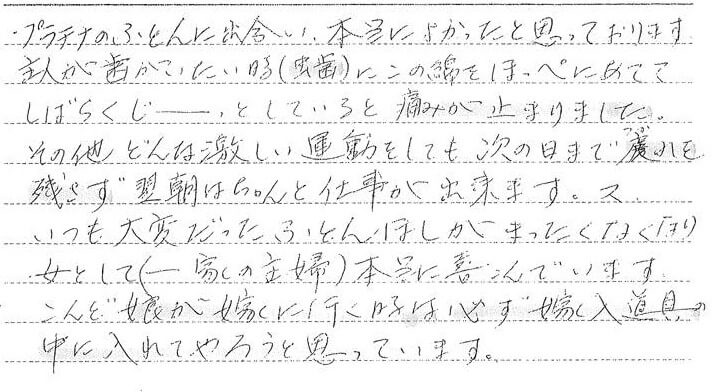 ・プラチナのふとんに出会い、本当によかったと思っております
主人が歯がいたい時(虫歯)にこの綿をほっぺにあてて
しばらくじ――、としていると痛みが止まりました。
その他どんな激しい運動をしても次の日まで疲れを
残さず翌朝はちゃんと仕事が出来ます。又、
いつも大変だったふとんほしがまったくなくなり
女として(一家の主婦)本当に喜こんでいます。
こんど娘が嫁に行く時は必ず嫁入道具の
中に入れてやろうと思っています。